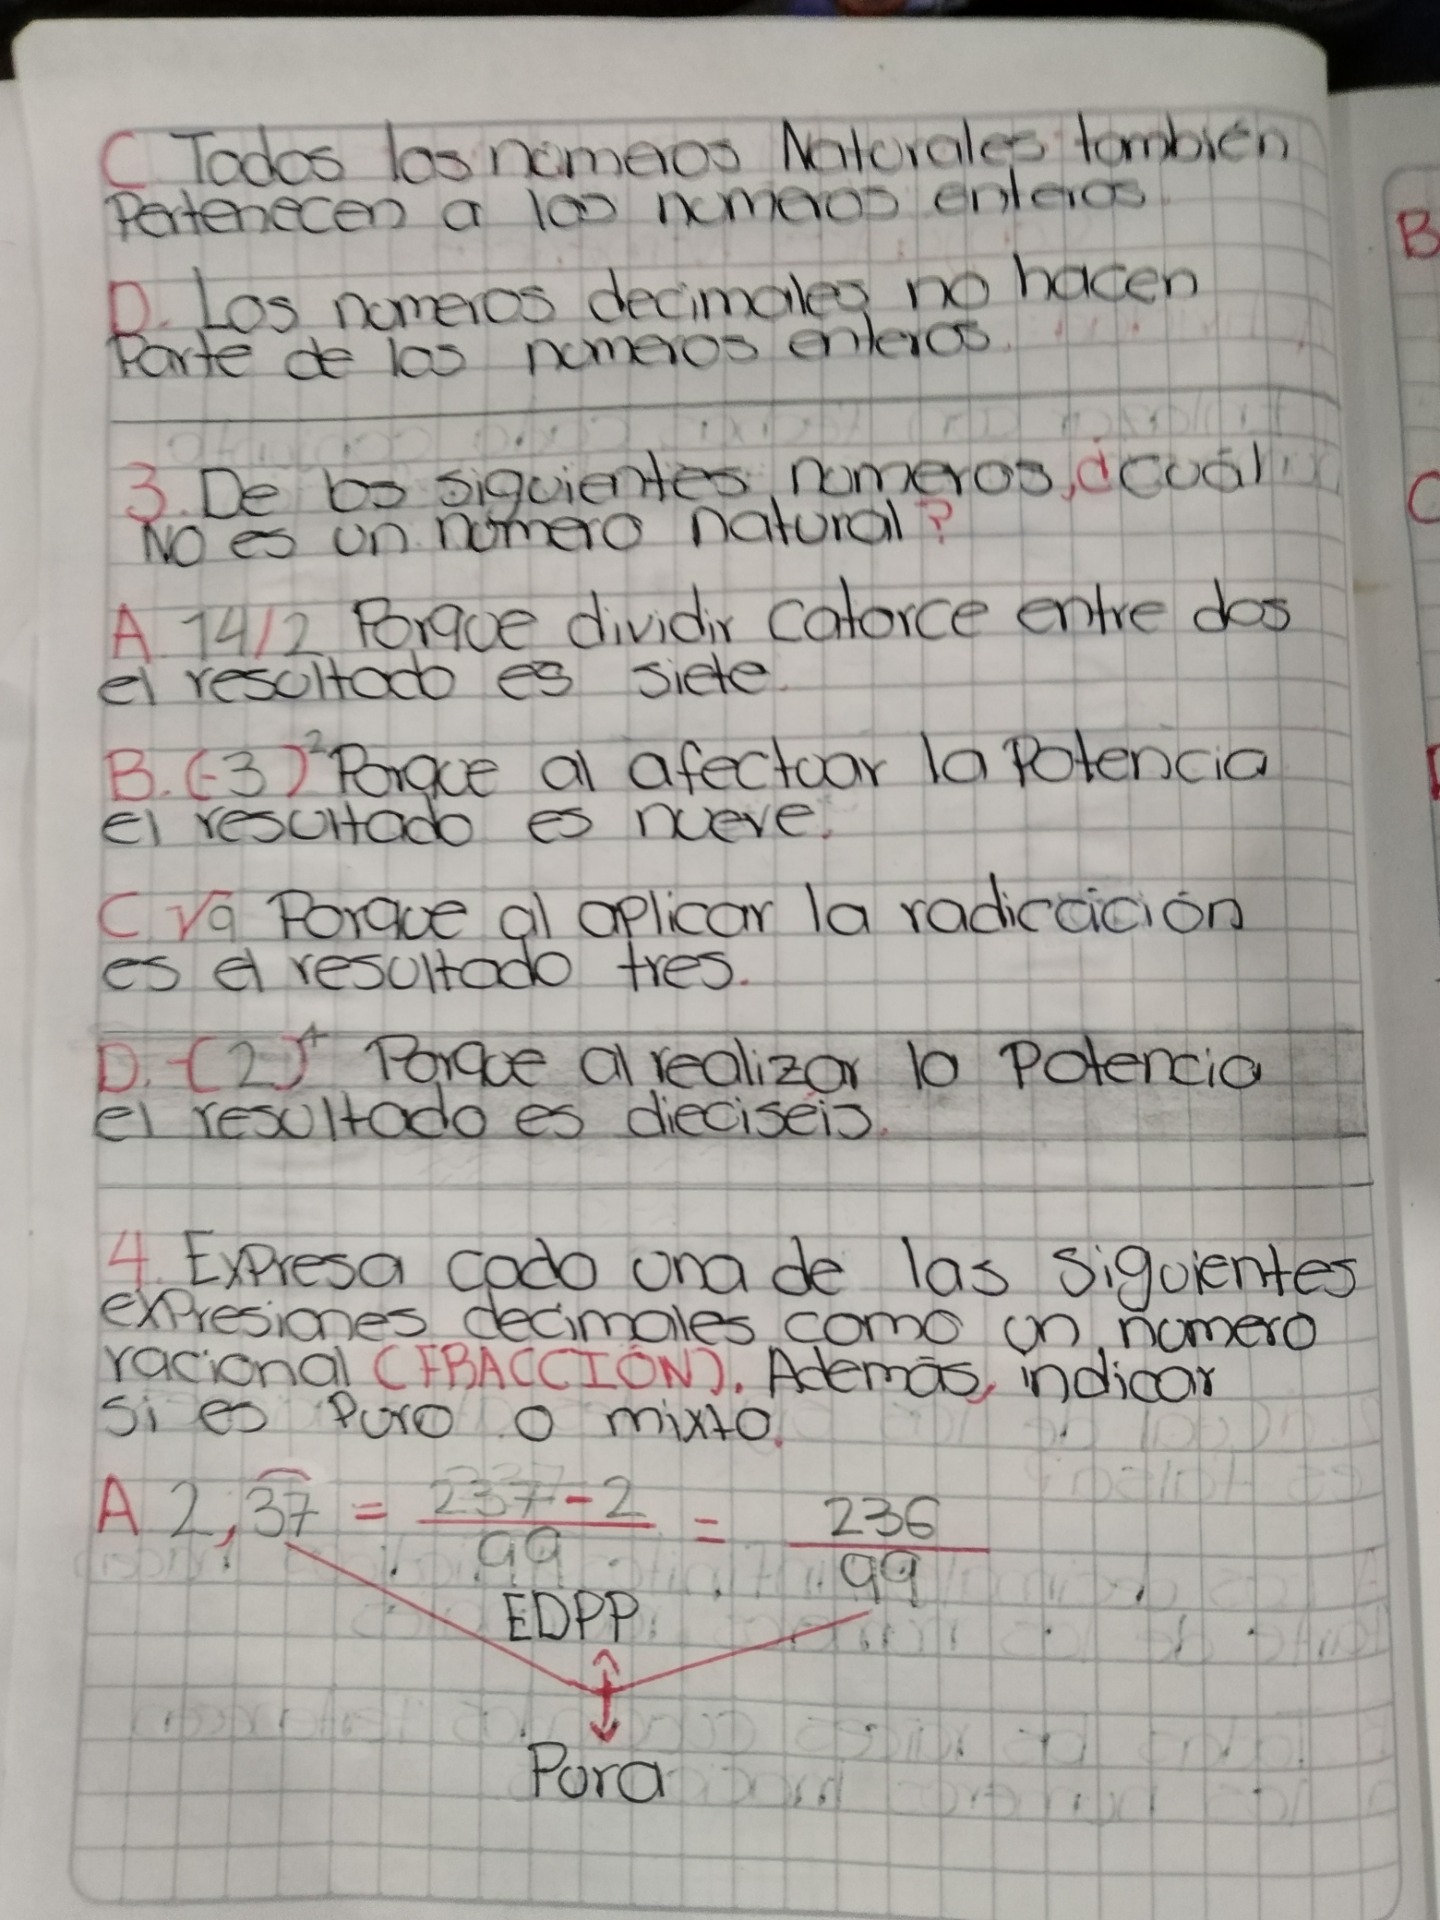 C Todos los números Naturales también
Pertenecen a los numeros enteros
D. Los numeros decimales no hacen
Parte de los numeros enteros.
3. De los siguientes numeros, ¿cuál
NO es un número natural?
A 14/2 Porque dividir catorce entre dos
el resultado es siete.
B. (-3)² Porque al afectuar la Potencia
el resultado es nueve.
C √9 Porque al aplicar la radicación
es el resultado tres.
D. -(2)⁴ Porque al realizar la Potencia
el resultado es dieciseis.
4. Expresa cada una de las siguientes
expresiones decimales como un numero
racional (FRACCIÓN). Además, indicar
si es Puro o mixto.
A 2,37 = 237-2 = 236
99 99
EDPP
Pura
B
C